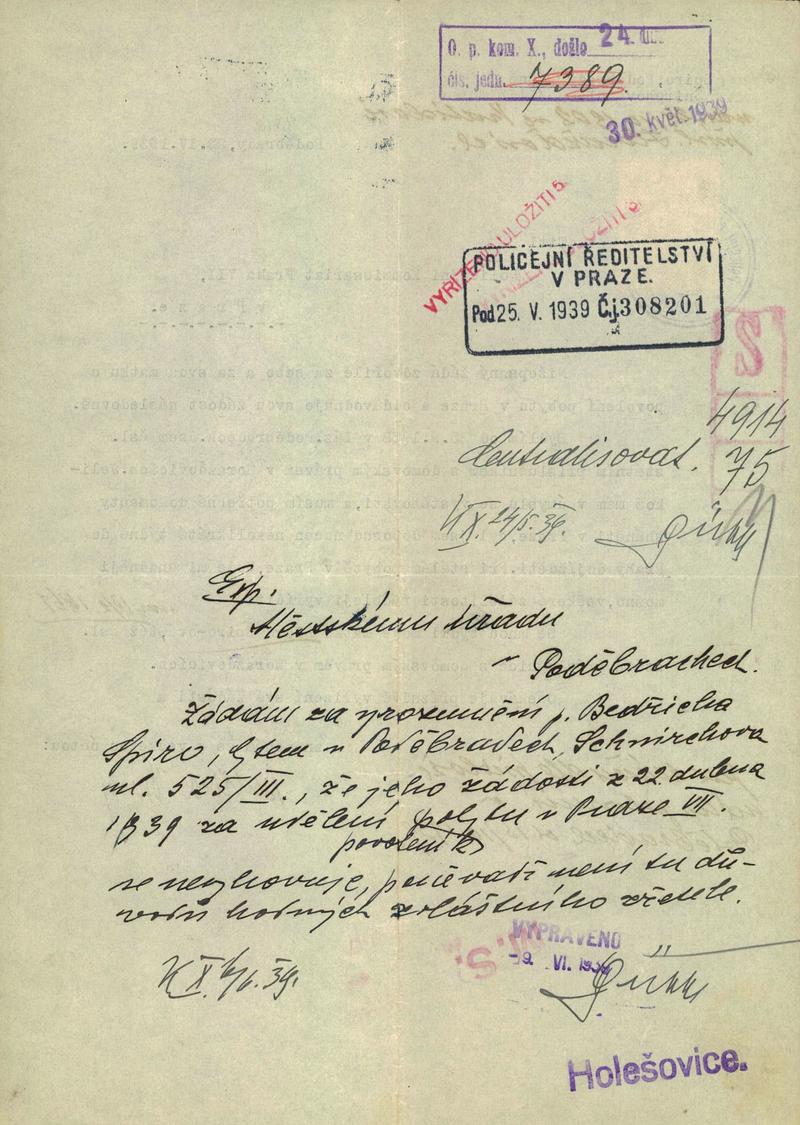 O. p. kom. X., došlo 24.
čís. jedn. 7389.
30. květ. 1939
VYŘÍZENO ULOŽITI 5
POLICEJNÍ ŘEDITELSTVÍ
V PRAZE.
Pod 25. V. 1939 Čj. 308201
S
4914
75
Centralisovat.
K X. 24/5. 39.
Exp.
Městskému úřadu
v Poděbradech.
Žádám za vyrozumění p. Bedřicha
Spiro, bytem v Poděbradech, Schnirchova
ul. 525/III., že jeho žádosti z 22. dubna
1939 za udělení povolení k pobytu v Praze VII.
se nevyhovuje, poněvadž není tu dů-
vodů hodných zvláštního zřetele.
VYPRAVENO
-9. VI. 1939
K X. 6/6. 39.
Holešovice.